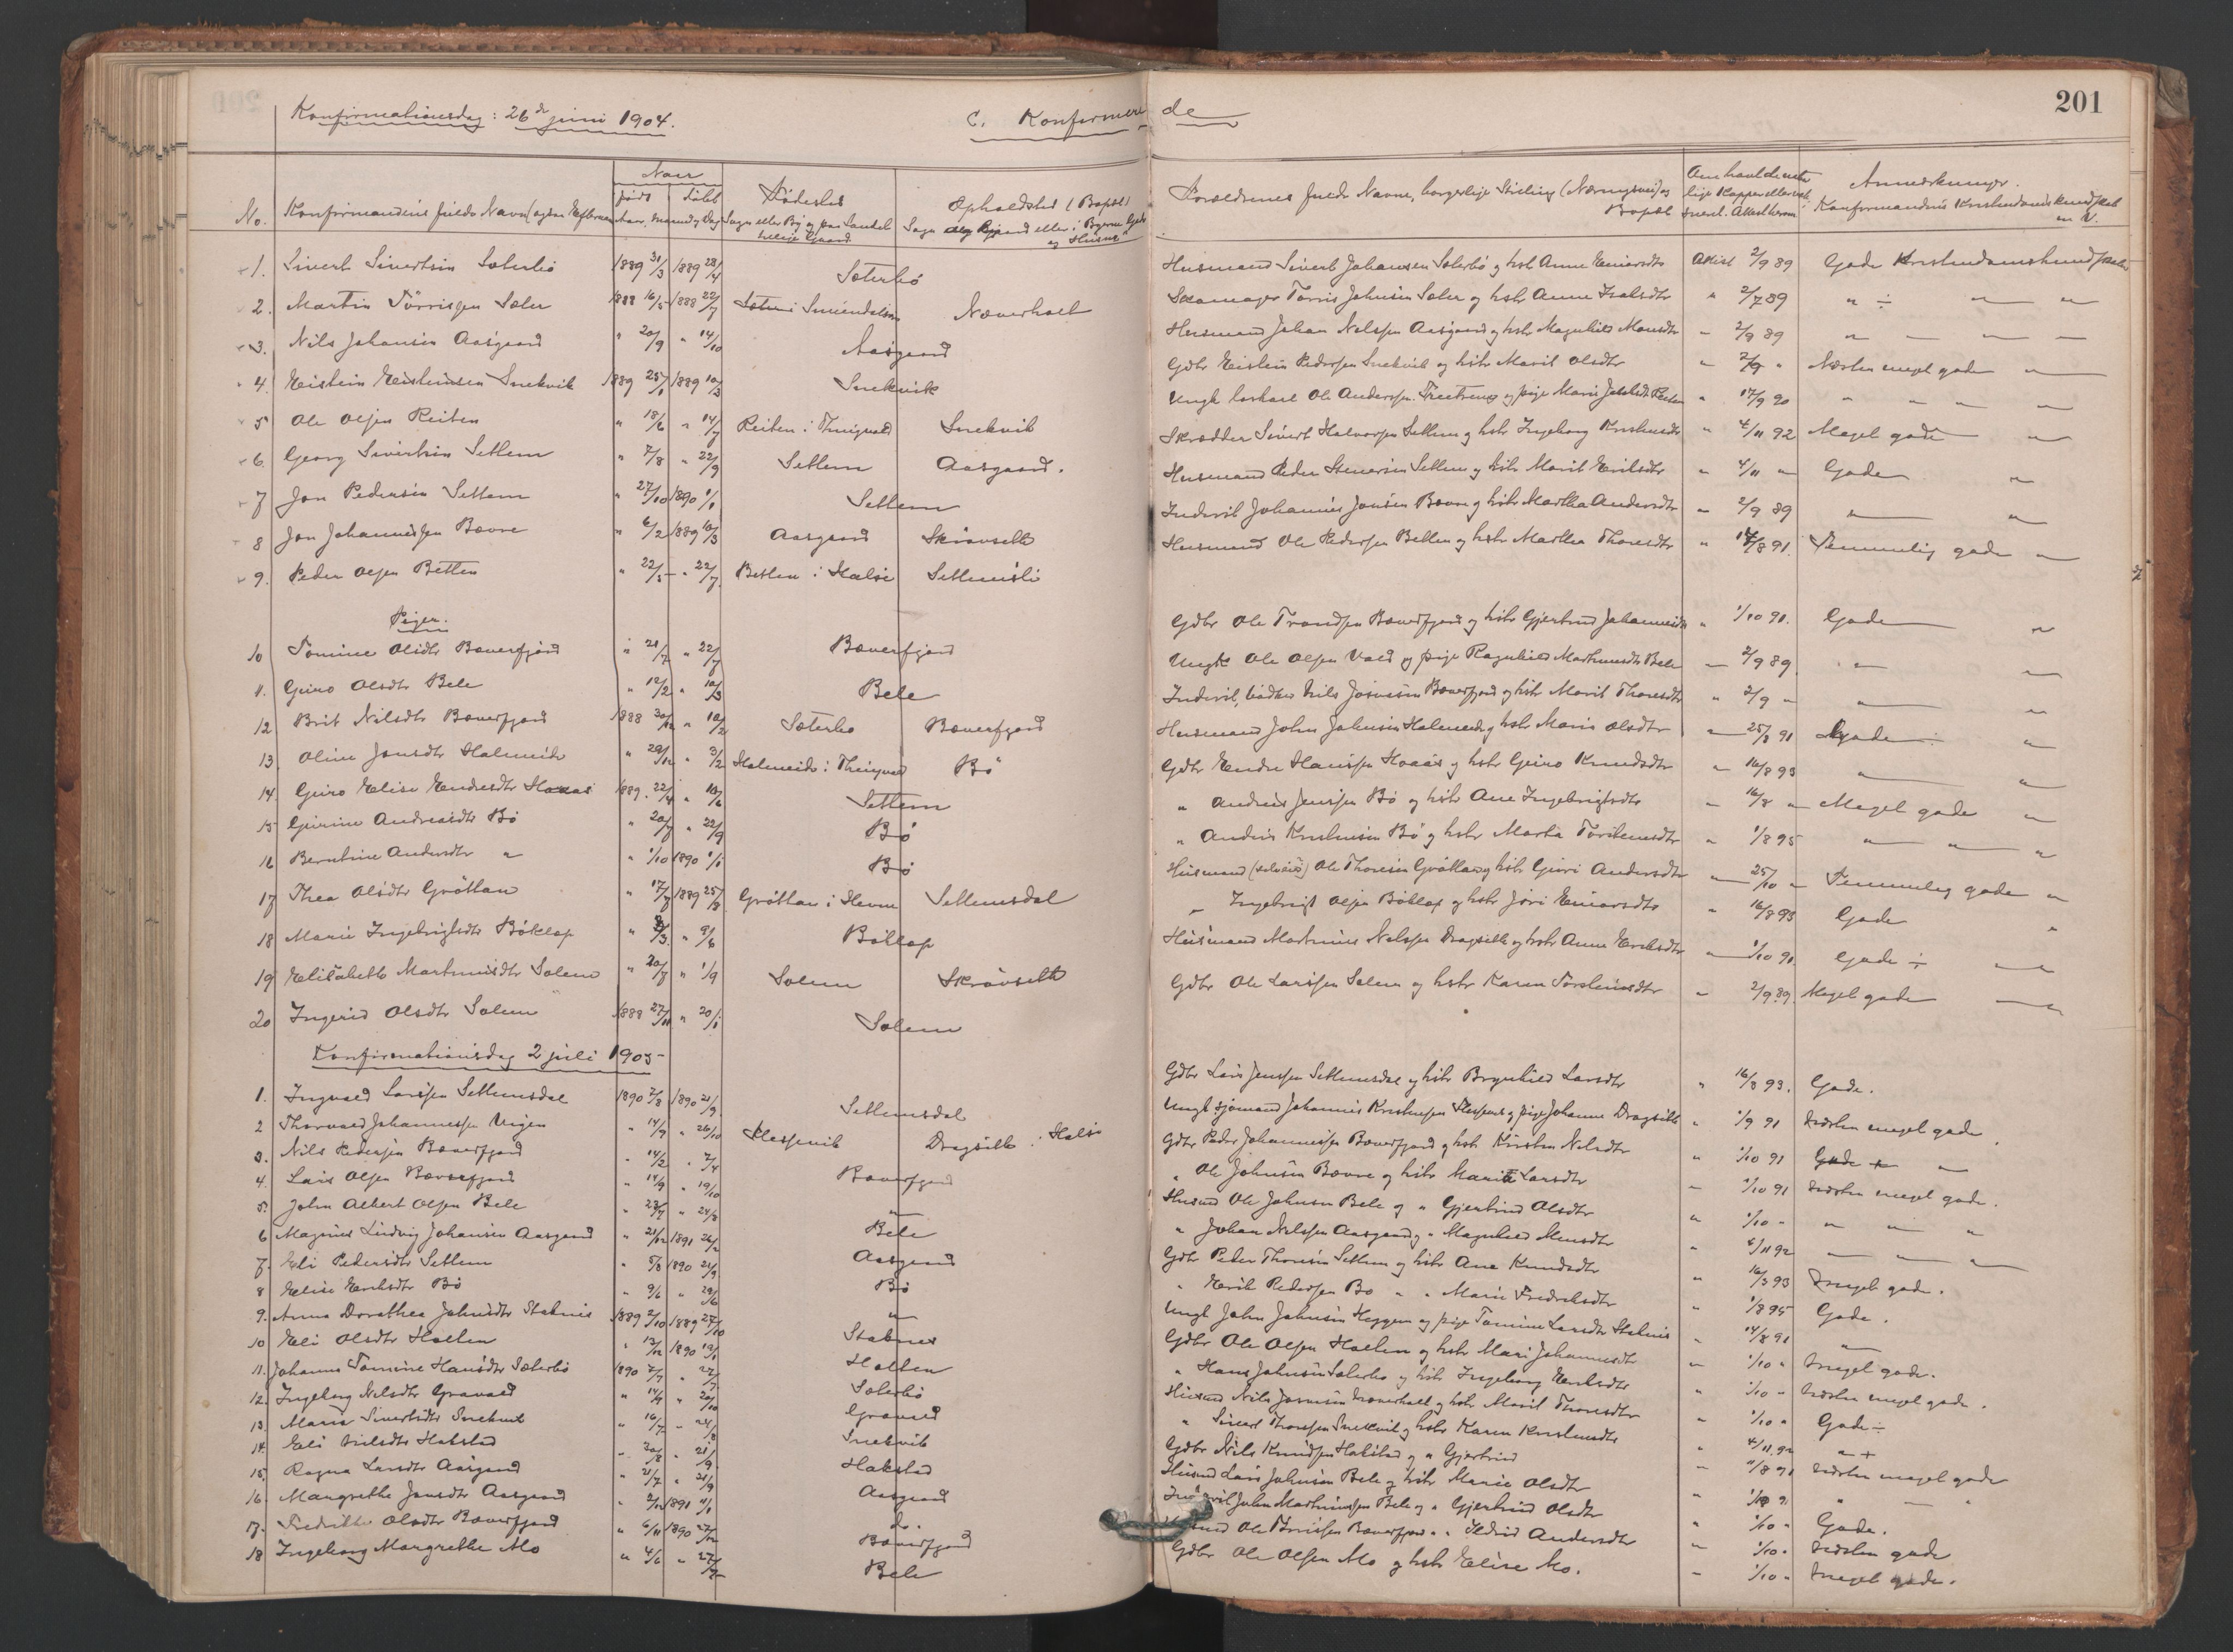 Konfirmationsdag: 26de juni 1904.
C. Konfirmerede
201
No.
Konfirmandens fulde Navn
Naar
født
døbt
Aar, Maaned og Dag
Fødested
Opholdssted (Bopæl)
Forældrenes fulde Navne, borgerlige Stilling (Næringsvei) og Bopæl
Anmerkninger.
Konfirmandens Kristendomskundskab m. V.
1. Sivert Sivertsen Sæterbø 1889 31/3 1889 28/4 Sæterbø Husmand Sivert Johansen Sæterbø og hstr Anne Einarsdtr Attest 2/9 89 Gode Kristendomskundskaber
2. Martin Tørrissen Sæter 1888 16/5 1888 22/7 Sæter i Surendalen Næverholt Skomager Tørris Johnsen Sæter og hstr Anne " 2/7 89 " ÷ " "
3. Nils Johansen Aasgaard " 20/9 " 14/10 Aasgaard Husmand Johan Nilssen Aasgaard og hstr Magnhild Monsdtr " 2/9 89 " " " "
4. Eistein Eisteinsen Snekvik 1889 25/1 1889 10/3 Snekvik Gdbr Eistein Pedersen Snekvik og hstr Marit Olsdtr " 2/9 " Næsten meget gode "
5 Ole Olsen Reiten " 18/6 " 14/7 Reiten i Thingvold Snekvik Ungk Ole Anderssen og pige Marie " 17/9 90 " " " "
6. Georg Sivertsen Settem " 7/8 " 22/9 Settem Aasgaard. Skrædder Sivert Halvorsen Settem og hstr Ingeborg " 4/11 92 Meget gode "
7 Jon Pedersen Settem " 27/10 1890 1/1 Settem Husmand Peder Settem og hstr Marit Eriksdtr " 4/11 " Gode "
8 Jon Johannessen Bævre " 6/2 1889 10/3 Aasgaard Skrøvseth Inderst Johannes Jonsen Bævre og hstr Martha Andersdtr " 2/9 89 " "
9. Peder Olsen Betten " 22/5 " 22/7 Betten i Halse Settemsli Husmand Ole Pedersen Betten og hstr Marthea Thoresdtr " 14/8 91. Temmelig gode "
Piger.
10 Tomine Olsdtr Bæverfjord " 21/7 " 22/7 Bæverfjord Gdbr Ole Trondsen Bæverfjord og hstr Gjertrud Johannesdtr " 1/10 91. Gode "
11. Guro Olsdtr Bele " 12/2 " 10/3 Bele Ungk Ole Olsen Vold og pige Ragnhild Bele " 2/9 89 " "
12 Brit Nilsdtr Bæverfjord 1888 30/12 " 10/2 Sæterbø Bæverfjord Inderst, Nils Bæverfjord og hstr Marit Thoresdtr " 2/9 " " "
13. Oline Jonsdtr Halmeide " 29/12 " 3/2 Halmeide i Thingvold Bø Husmand John Johnsen Halmeide og hstr Marie Olsdtr " 25/8 91 Gode "
14. Guro Elise Endresdtr Hoaas 1889 22/4 " 10/6 Settem Gdbr Endre Hanssen Hoaas og hstr Guro Knudsdtr " 16/8 93 " "
15 Gurine Andreasdtr Bø " 20/8 " 22/9 Bø " Andreas Jenssen Bø og hstr Ane Ingebrigtsdtr " 16/8 " Meget gode "
16 Berntine Andersdtr " " 1/10 1890 1/1 Bø " Anders Kristensen Bø og hstr Marta Torstensdtr " 1/8 95 " " "
17 Thea Olsdtr Grøttan " 17/7 1889 25/8 Grøttan i Hevne Settemsdal Husmand Ole Thoresen Grøttan og hstr Guri Andersdtr " 25/10 " Temmelig gode "
18 Marie Ingebrigtsdtr Bøklep 9/6 Bøklep " Ingebrigt Olsen Bøklep og hstr Jøri Einarsdtr " 16/8 93 Gode "
19 Elisabeth Martinusdtr Solem " 20/7 " 1/9 Solem Skrøvseth Husmand Martinus Nilssen Dragseth og hstr Anne Eriksdtr " 1/10 91. Gode ÷ "
20 Ingerid Olsdtr Solem 1888 27/11 " 20/1 Solem Gdbr Ole Larssen Solem og hstr Karen Torstensdtr " 2/9 89. Meget gode "
Konfirmationsdag 2 juli 1905
1. Ingvald Larssen Settemsdal 1890 1890 21/9 Settemsdal Gdbr Lars Jenssen Settemsdal og hstr Brynhild Larsdtr " 16/8 93. Gode.
2 Thorvald Johannessen Vigen " 14/9 " 26/10 Dragseth i Halse Ungk sjømand Johannes Kristensen og pige Johanne Dragseth " 1/9 91 Næsten meget gode.
3. Nils Pedersen Bæverfjord " 14/2 " 7/4 Bæverfjord Gdbr Peder Johannessen Bæverfjord og hstr Kirsten Nilsdtr " 1/10 91 Gode + "
4. Lars Olsen Bæverfjord " 14/9 " 19/10 " " Ole Johnsen Bævre og hstr Marit Larsdtr " 1/10 91 Næsten meget gode.
5. John Albert Olsen Bele " 24/8 Bele Husmd Ole Johnsen Bele og " Gjertrud Olsdtr " 1/10 " " " "
6 Magnus Ludvig Johansen Aasgaard " 21/12 1891 26/2 Aasgaard " Johan Nilssen Aasgaard og " Magnhild Monsdtr " 6/11 92 " " "
7. Eli Pedersdtr Settem " 5/8 1890 21/9 Gdbr Peder Thoresen Settem og hstr Ane Knudsdtr " 16/8 93 Meget gode.
8 Elise Eriksdtr Bø " 9/6 " 29/6 Bø " Erik Pedersen Bø " " Marie Fredriksdtr " 1/8 95 Gode.
9. Anna Dorothea Johnsdtr Stabnes 1889 2/10 1889 27/10 Stabnes Ungk John Johnsen Heggem og pige Tomine Larsdtr Stabnes " 14/8 91 "
10 Eli Olsdtr Holten " 12/12 1890 19/1 Holten Gdbr Ole Olsen Holten og hstr Mari Johannesdtr " 1/10 " Meget gode.
11. Johanne Tomine Hansdtr Sæterbø 1890 7/7 " 27/7 Sæterbø " Hans Johnsen Sæterbø og hstr Ingeborg Eriksdtr " 1/10 " Næsten meget gode.
12. Ingeborg Nilsdtr Gravold " 14/9 " 20/10 Gravold Husmd Nils Næverholt og hstr Marit Thoresdtr " 1/10 " Gode ÷
13. Marie Sivertsdtr Snekvik " 16/7 " Snekvik " Sivert Thoresen Snekvik og hstr Karen Kristensdtr " 4/11 92 " +
14. Eli Nilsdtr Hakstad " 20/8 " 21/9 Hakstad Gdbr Nils Knudsen Hakstad og " Gjertrud " 11/8 91 Næsten meget gode
15. Ragna Larsdtr Aasgaard " 21/7 " 21/9 Aasgaard Husmd Lars Johnsen Bele og hstr Marie Olsdtr " 1/10 91 " " "
16. Margrethe Jonsdtr Aasgaard " 2/12 1891 1/1 do. Inderst John Martinussen Bele og " Gjertrud Olsdtr " 1/10 " Gode.
17. Fredrikke Olsdtr Bæverfjord " 6/11 1890 27/12 Bæverfjord Husmd Ole Bæverfjord " " Ildrid Andersdtr " 1/10 " Næsten gode
18 Ingeborg Margrethe Mo " 4/6 " Bele Gdbr Ole Olsen Mo og hstr Elise Mo. " 1/10 " Meget gode.